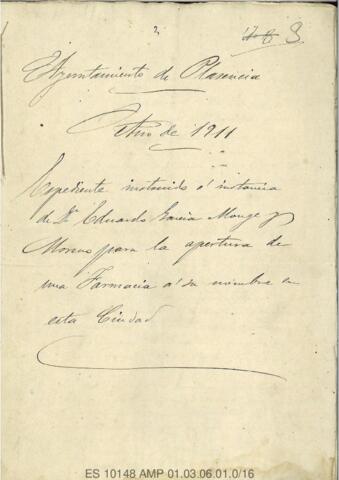 2
8
Ayuntamiento de Plasencia
Año de 1911
Expediente instruido á instancia
de Dn Eduardo García Monge y
Moreno para la apertura de
una Farmacia á su nombre en
esta Ciudad
ES 10148 AMP 01.03.06.01.0/16